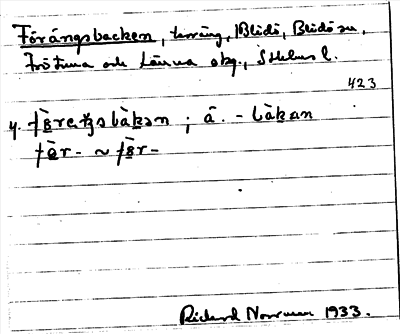 Förängsbacken, terräng, Blidö, Blidö sn,
Frötuna och Länna skg., Sthlms l.
423
y. fö̀reŋsbàkən ; ä. - bàkan
fö̀r- ~ fö̀r-
Richard Norrman 1933.